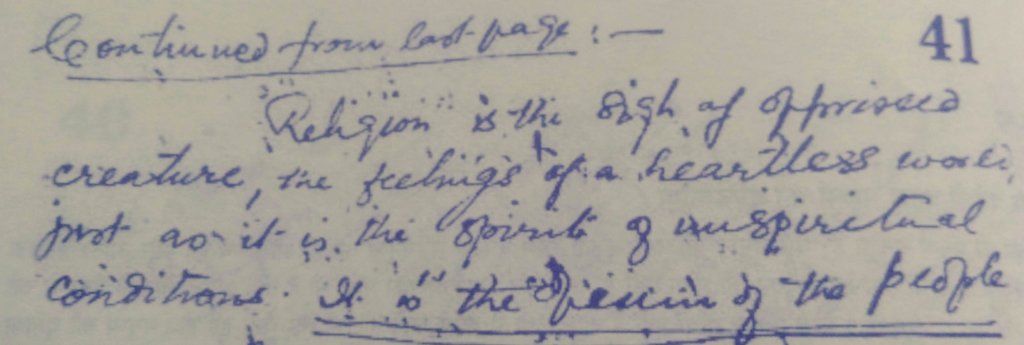 Continued from last page :—
41
Religion is the sigh of oppressed
creature, the feelings of a heartless world,
just as it is the spirit of unspiritual
conditions. It is the opium of the people